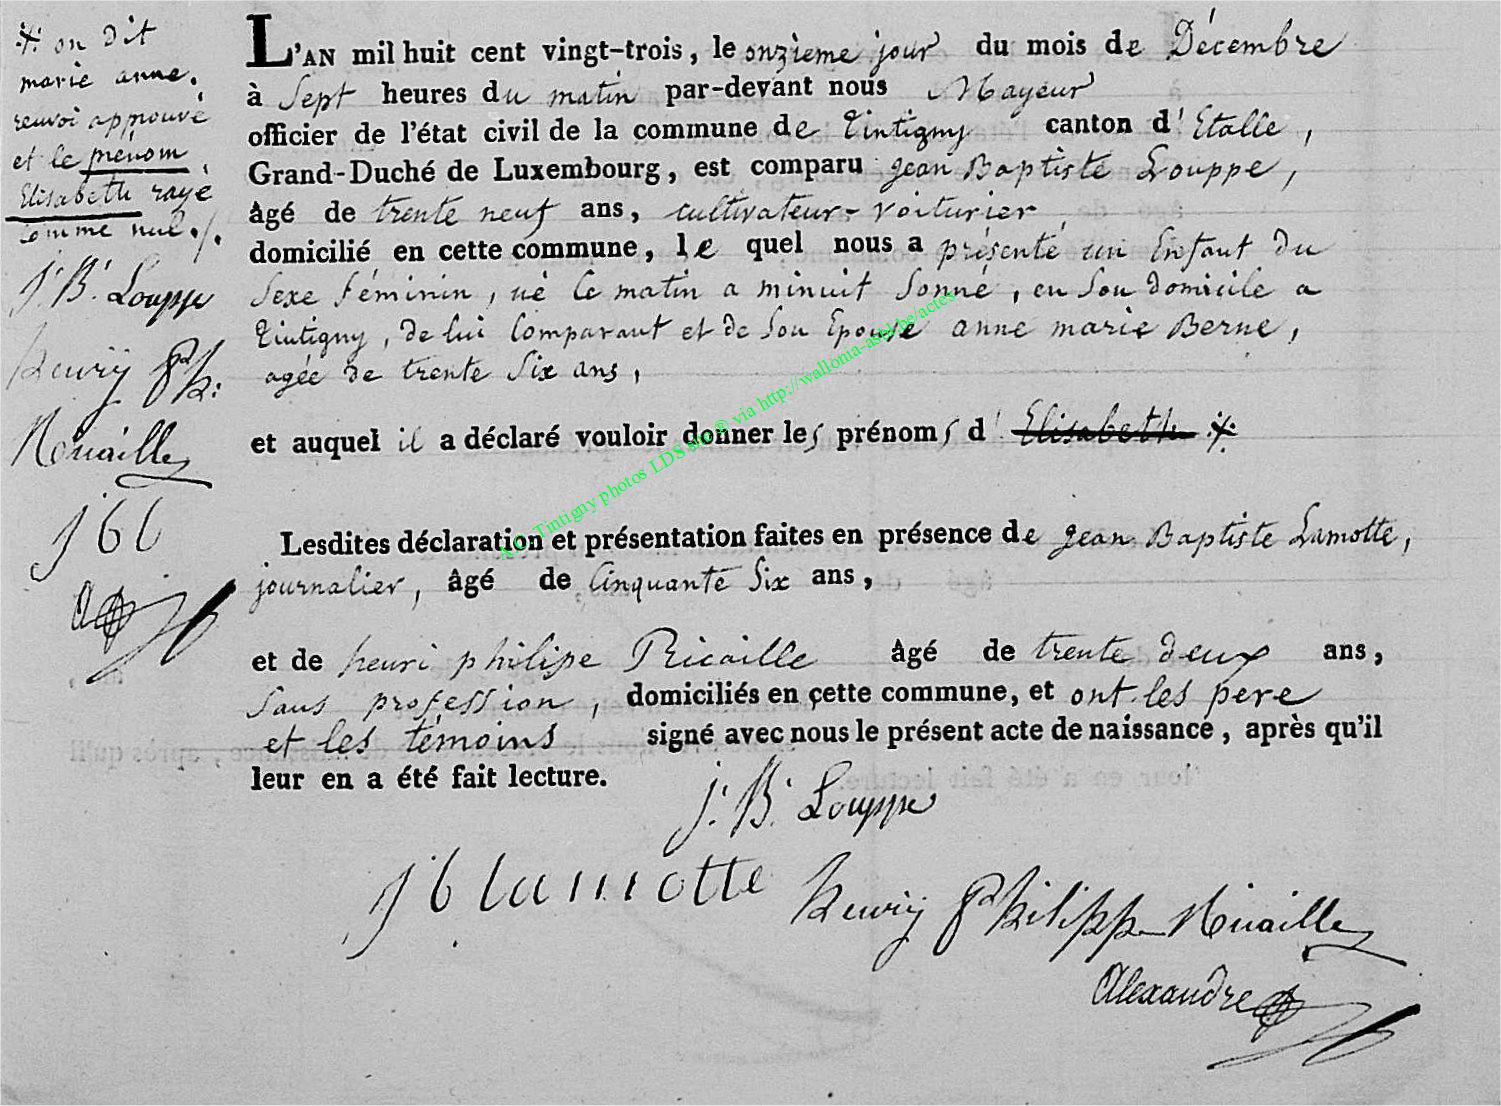 ⁜ on dit
marie anne.
renvoi approuvé
et le prénom
Elisabeth rayé
comme nul./.
J. B. Louppe
henrÿ Ph:
j b l
L'AN mil huit cent vingt-trois, le onzième jour du mois de Décembre
à Sept heures du matin par-devant nous Mayeur
officier de l'état civil de la commune de Tintigny canton d'Etalle,
Grand-Duché de Luxembourg, est comparu jean Baptiste Louppe,
âgé de trente neuf ans, cultivateur-voiturier,
domicilié en cette commune, le quel nous a présenté un Enfant du
Sexe féminin, né le matin a minuit Sonné, en Son domicile a
Tintigny, de lui Comparant et de Son Epouse anne marie Berne,
agée de trente Six ans,
et auquel il a déclaré vouloir donner les prénoms d'Elisabeth ⁜
Lesdites déclaration et présentation faites en présence de jean Baptiste Lamotte,
journalier, âgé de Cinquante Six ans,
et de henri philipe Ricaille âgé de trente deux ans,
Sans profession, domiciliés en cette commune, et ont les pere
et les témoins signé avec nous le présent acte de naissance, après qu'il
leur en a été fait lecture.
J. B. Louppe
j b lamotte
henrÿ Philipp
Alexandre
A.C. Tintigny photos LDS via http://wallonia-asbl.be/actes